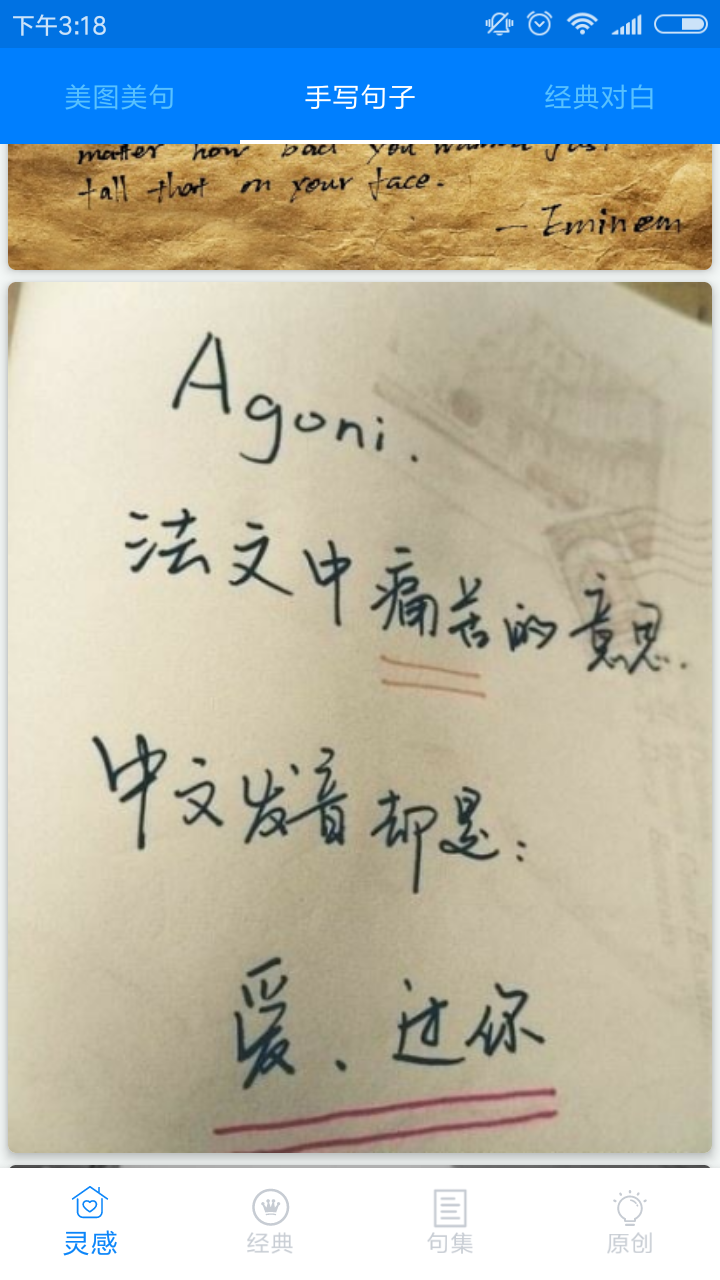 下午3:18
美图美句 手写句子 经典对白
matter how bad you wanna just
fall that on your face.
— Eminem
Agoni.
法文中痛苦的意思.
中文发音却是:
爱、过你
灵感 经典 句集 原创